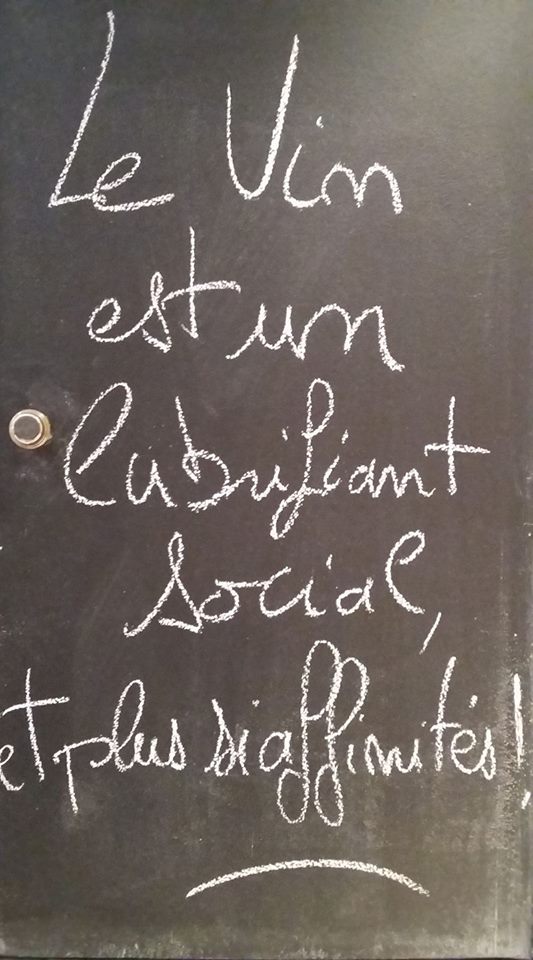 Le Vin
est un
lubrifiant
social,
et plus si affinités!